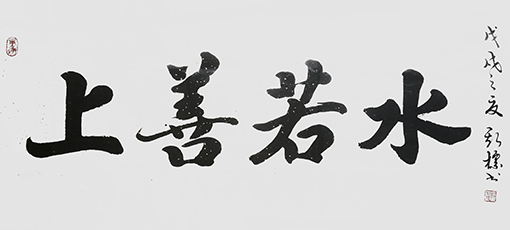 上善若水
戊戌之夏